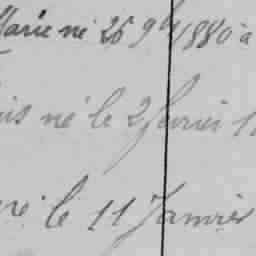 Marie né 26 9bre 1880 à
né le 2 février 1
le 11 Janvier